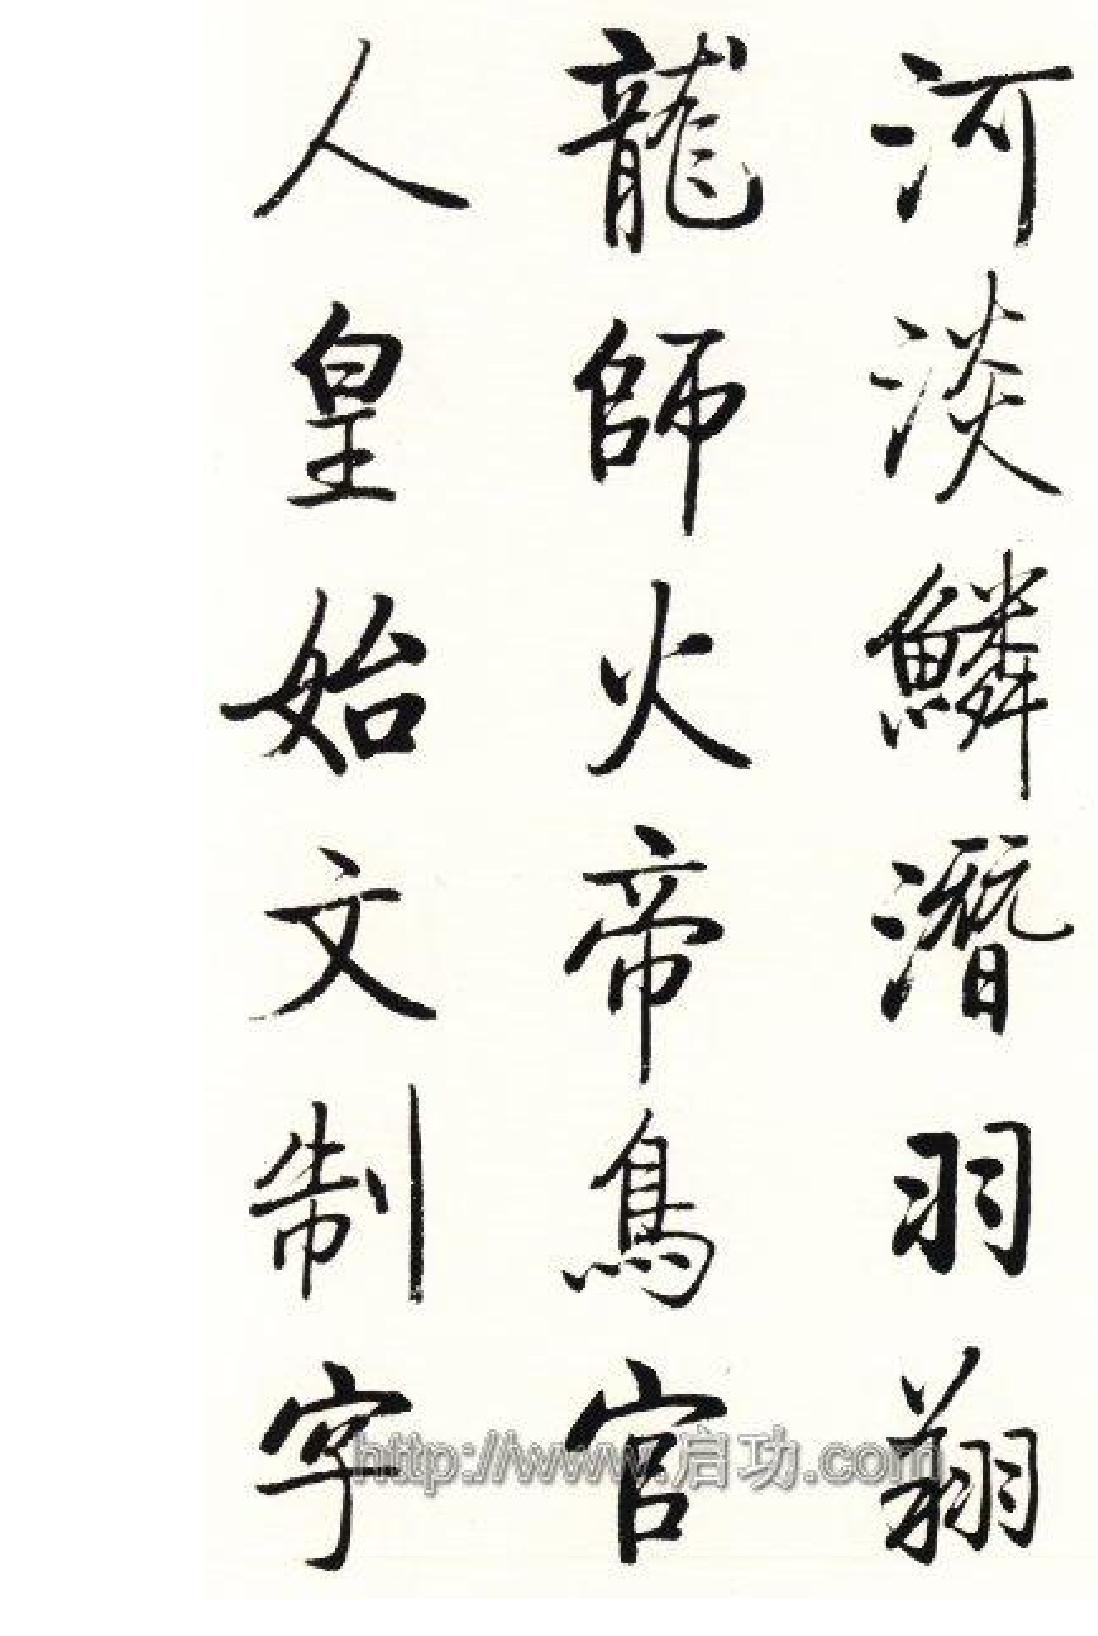 河淡鱗潛羽翔
龍師火帝鳥官
人皇始文制字
http://www.启功.com